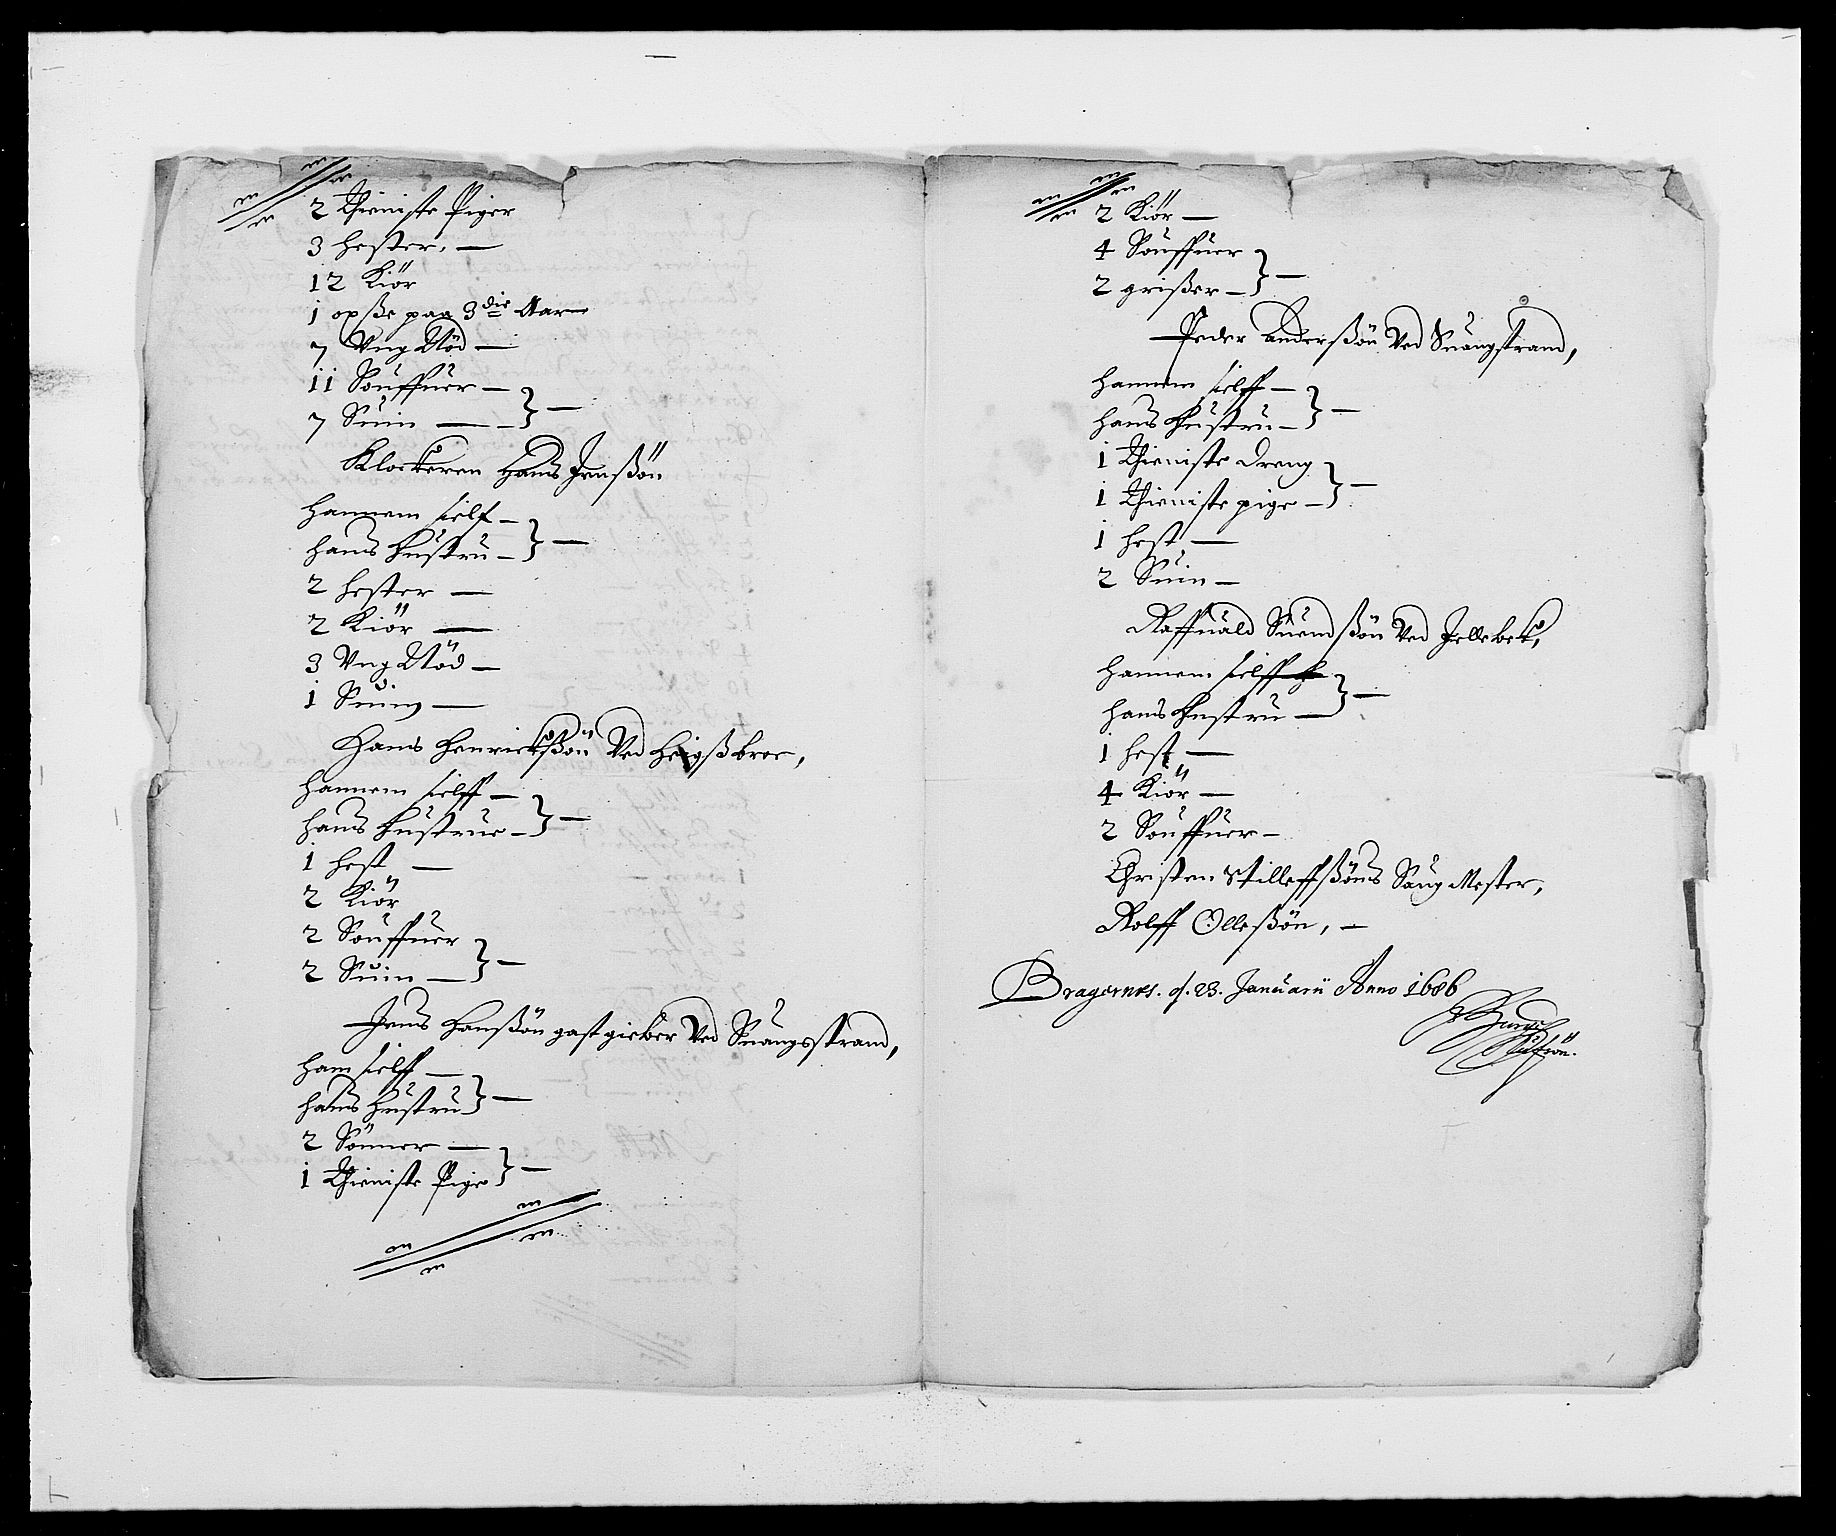 2 Thieniste Piger
3 hester. —
12 Kiör
1 oxße paa 3die Aar
7 Ung Nöd —
11 Souffuer —
7 Suin —
Klockeren Hans Jenßön
hannem sielf —
hans Hustru —
2 hester —
2 Kiör —
3 Ung Nöd —
1 Suin —
Hans Henrichßön Ved
hannem sielff —
hans Hustrue —
1 hest —
2 Kiör
2 Souffuer
2 Suin —
Jens Hanßön gastgieber Ved Suangsstrand,
ham sielff —
hans Hustru
2 Sönner —
1 Thieniste Pige
2 Kiör —
4 Souffuer
2 grißer —
Peder Anderßön Ved Suangstrand,
hannem sielff —
hans Hustru —
1 Thieniste Dreng
1 Thieniste pige —
1 hest —
2 Suin —
Raffuald Suendßön Ved Jellebek,
hannem sielff
hans Hustru —
1 hest —
4 Kiör —
2 Souffuer —
Christen Stilleffßöns Saug Mester,
Rolff Olleßön, —
Bragernes. d. 23. Januarii Anno 1686